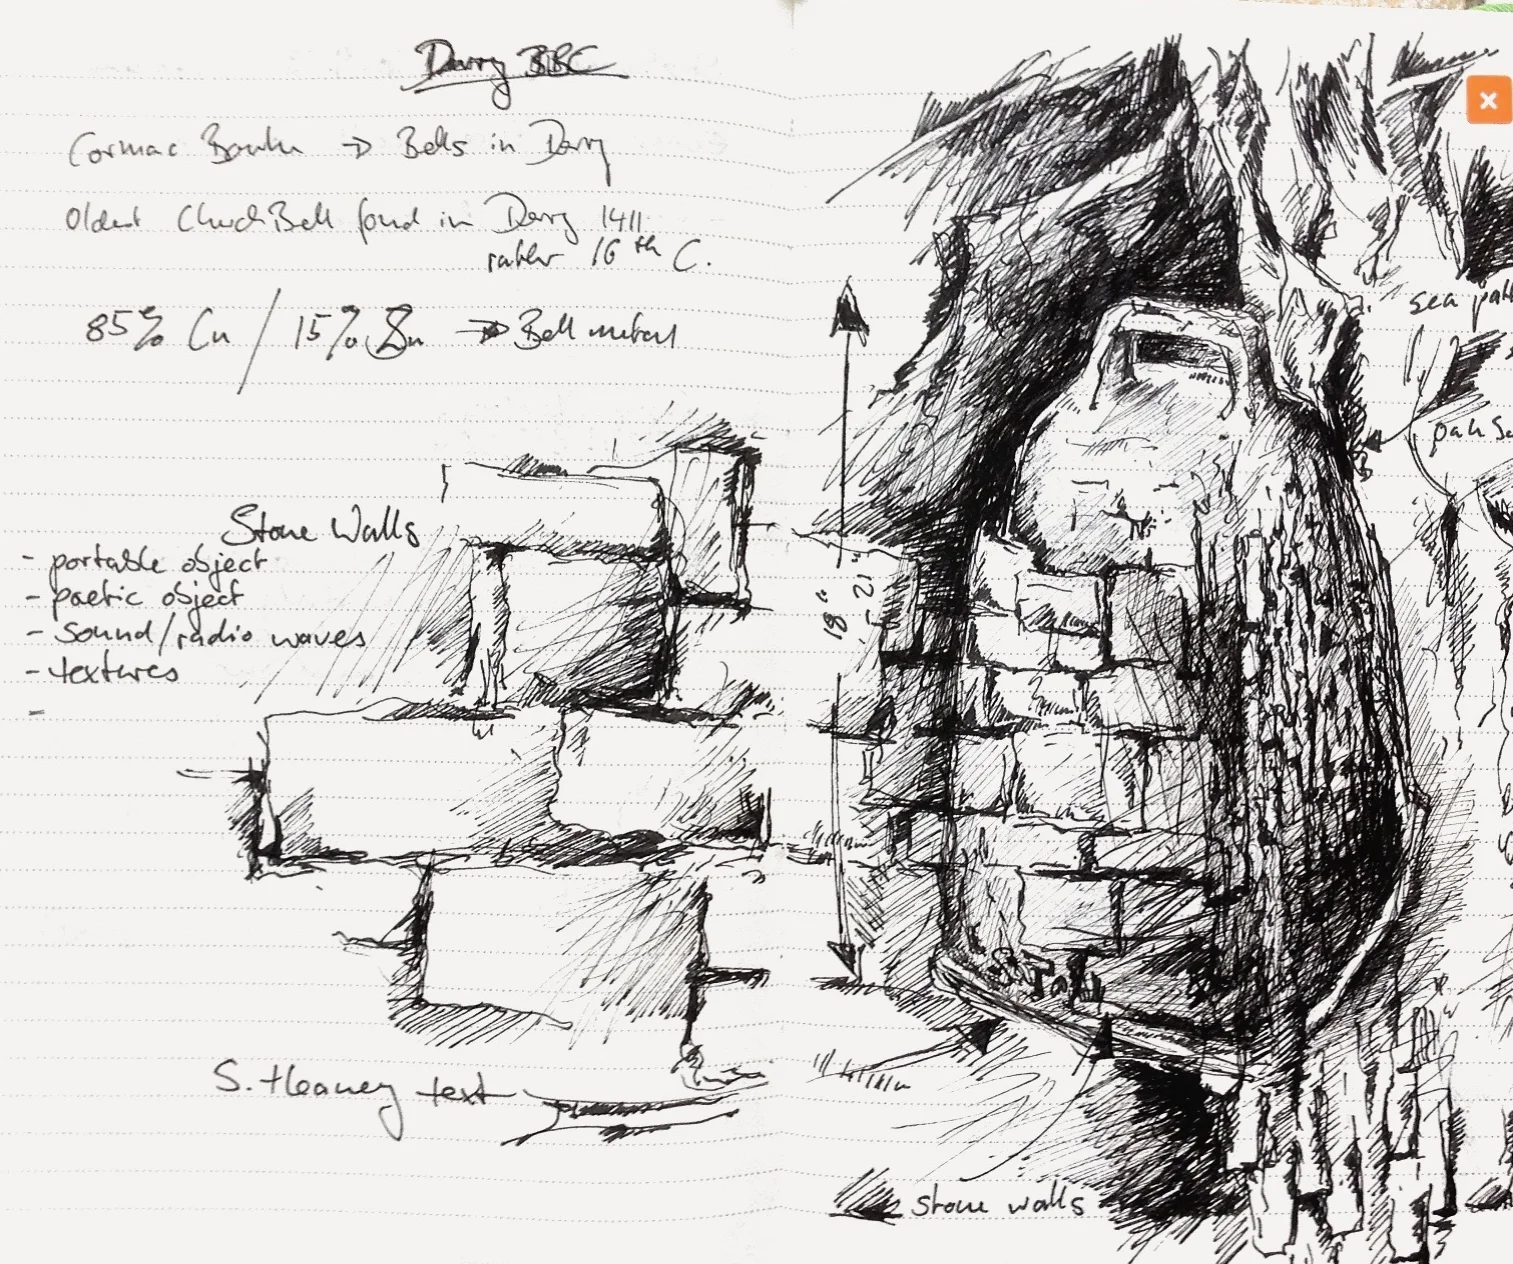 Derry BBC
Cormac → Bells in Derry
Oldest Church Bell found in Derry 1411
rather 16th C.
85% Cu / 15% Sn → Bell metal
Stone Walls
- portable object
- poetic object
- sound/radio waves
- textures
-
S. Heaney text
18" - 21"
sea
stone walls